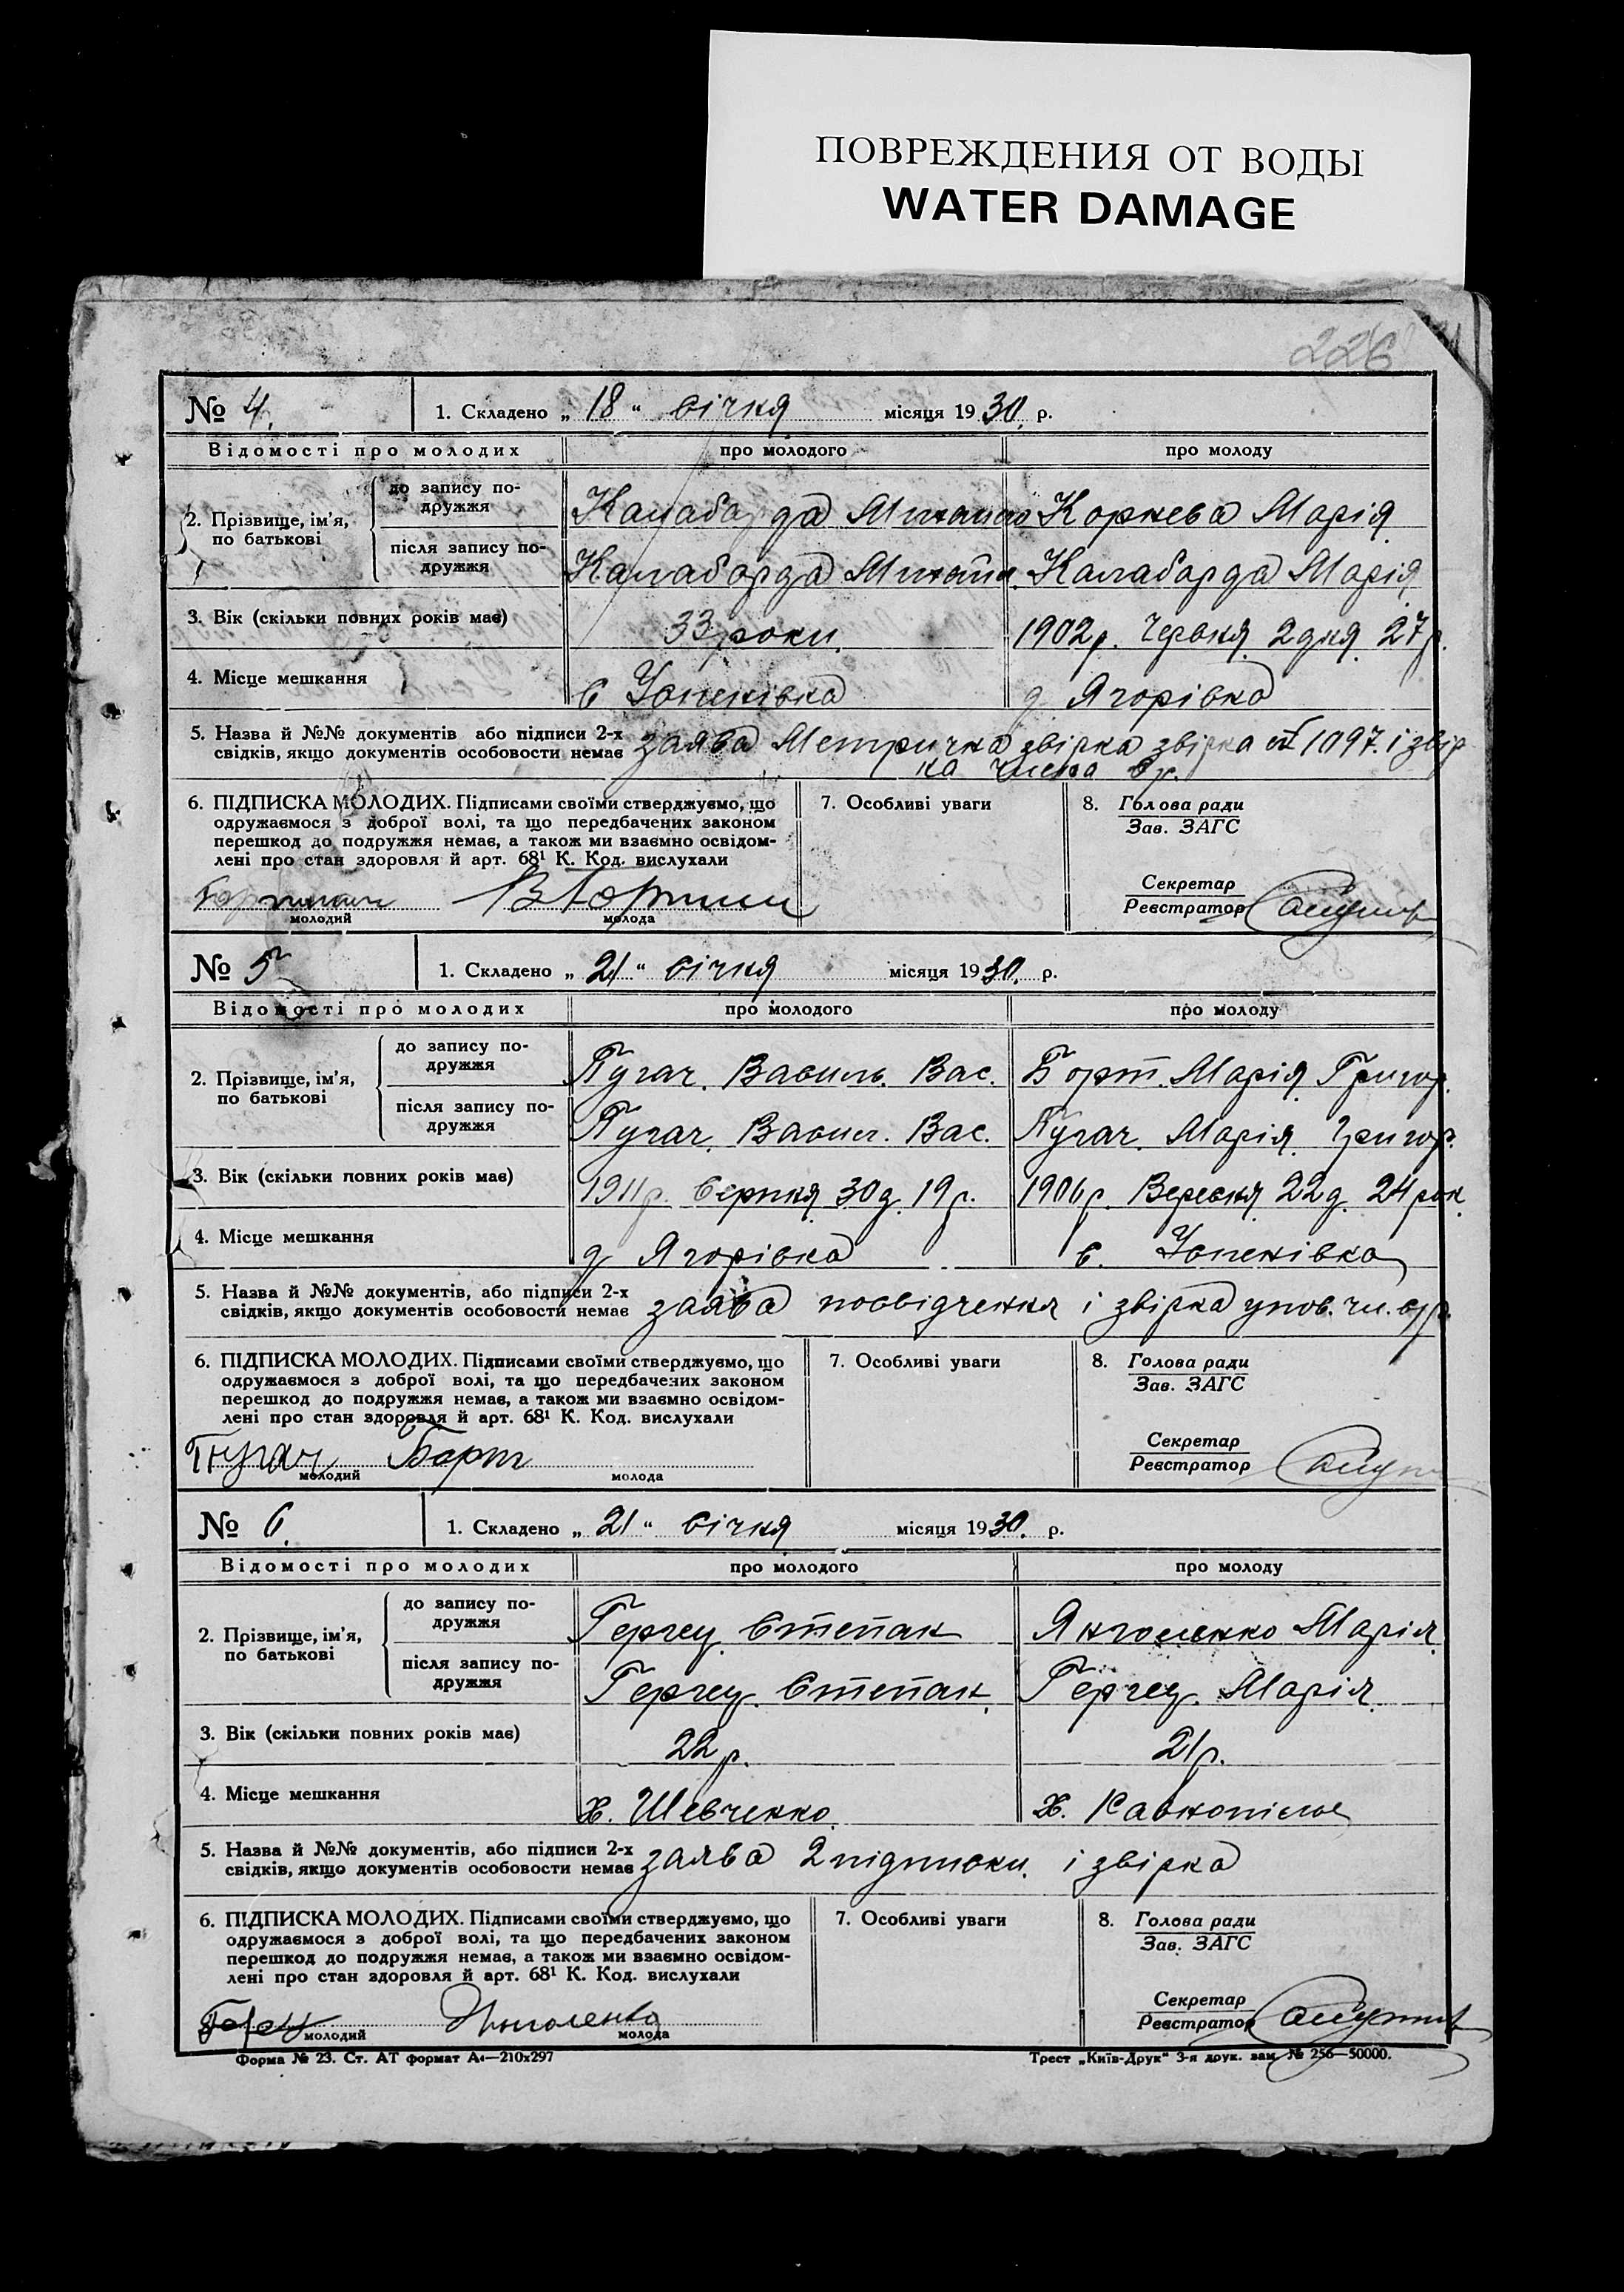 ПОВРЕЖДЕНИЯ ОТ ВОДЫ
WATER DAMAGE
226
№ 4. 1. Складено „ 18 “ січня місяця 1930. р.
Відомості про молодих про молодого про молоду
2. Прізвище, ім'я, по батькові
до запису по-
дружжя
Калабарда Михайло Корнева Марія
після запису по-
дружжя
Калабарда Калабарда Марія
3. Вік (скільки повних років має) 33 роки. 1902р. Червня 2 дня 27р.
4. Місце мешкання с д Ягорівка
5. Назва й №№ документів або підписи 2-х
свідків, якщо документів особовости немає заява Метрична звірка звірка № 1097. і звір
ка члена
6. ПІДПИСКА МОЛОДИХ. Підписами своїми стверджуємо, що
одружаємося з доброї волі, та що передбачених законом
перешкод до подружжя немає, а також ми взаємно освідом-
лені про стан здоровля й арт. 68¹ К. Код. вислухали
молодий молода
7. Особливі уваги
8. Голова ради
Зав. ЗАГС
Секретар
Реєстратор
№ 5 1. Складено „ 21 “ січня місяця 1930. р.
Відомості про молодих про молодого про молоду
2. Прізвище, ім'я, по батькові
до запису по-
дружжя
Пугач. Василь. Вас. Борт. Марія Григор.
після запису по-
дружжя
Пугач. Васил. Вас. Пугач. Марія Григор.
3. Вік (скільки повних років має) 1911р. Серпня 30д. 19р. 1906р. Вересня 22д. 24 рок.
4. Місце мешкання д Ягорівка с.
5. Назва й №№ документів, або підписи 2-х
свідків, якщо документів особовости немає заява посвідчення і звірка упов. чл. с/р.
6. ПІДПИСКА МОЛОДИХ. Підписами своїми стверджуємо, що
одружаємося з доброї волі, та що передбачених законом
перешкод до подружжя немає, а також ми взаємно освідом-
лені про стан здоровля й арт. 68¹ К. Код. вислухали
Пугач Борт
молодий молода
7. Особливі уваги
8. Голова ради
Зав. ЗАГС
Секретар
Реєстратор
№ 6. 1. Складено „ 21 “ січня місяця 1930. р.
Відомості про молодих про молодого про молоду
2. Прізвище, ім'я, по батькові
до запису по-
дружжя
Герец Степан Янголенко Марія
після запису по-
дружжя
Герец. Степан. Герец. Марія.
3. Вік (скільки повних років має) 22р. 21р.
4. Місце мешкання х. Шевченко. х.
5. Назва й №№ документів, або підписи 2-х
свідків, якщо документів особовости немає заява 2 підписки і звірка
6. ПІДПИСКА МОЛОДИХ. Підписами своїми стверджуємо, що
одружаємося з доброї волі, та що передбачених законом
перешкод до подружжя немає, а також ми взаємно освідом-
лені про стан здоровля й арт. 68¹ К. Код. вислухали
Янголенко
молодий молода
7. Особливі уваги
8. Голова ради
Зав. ЗАГС
Секретар
Реєстратор
Форма № 23. Ст. АТ формат А₄—210х297 Трест „Київ-Друк“ 3-я друк. зам. № 256—50000.